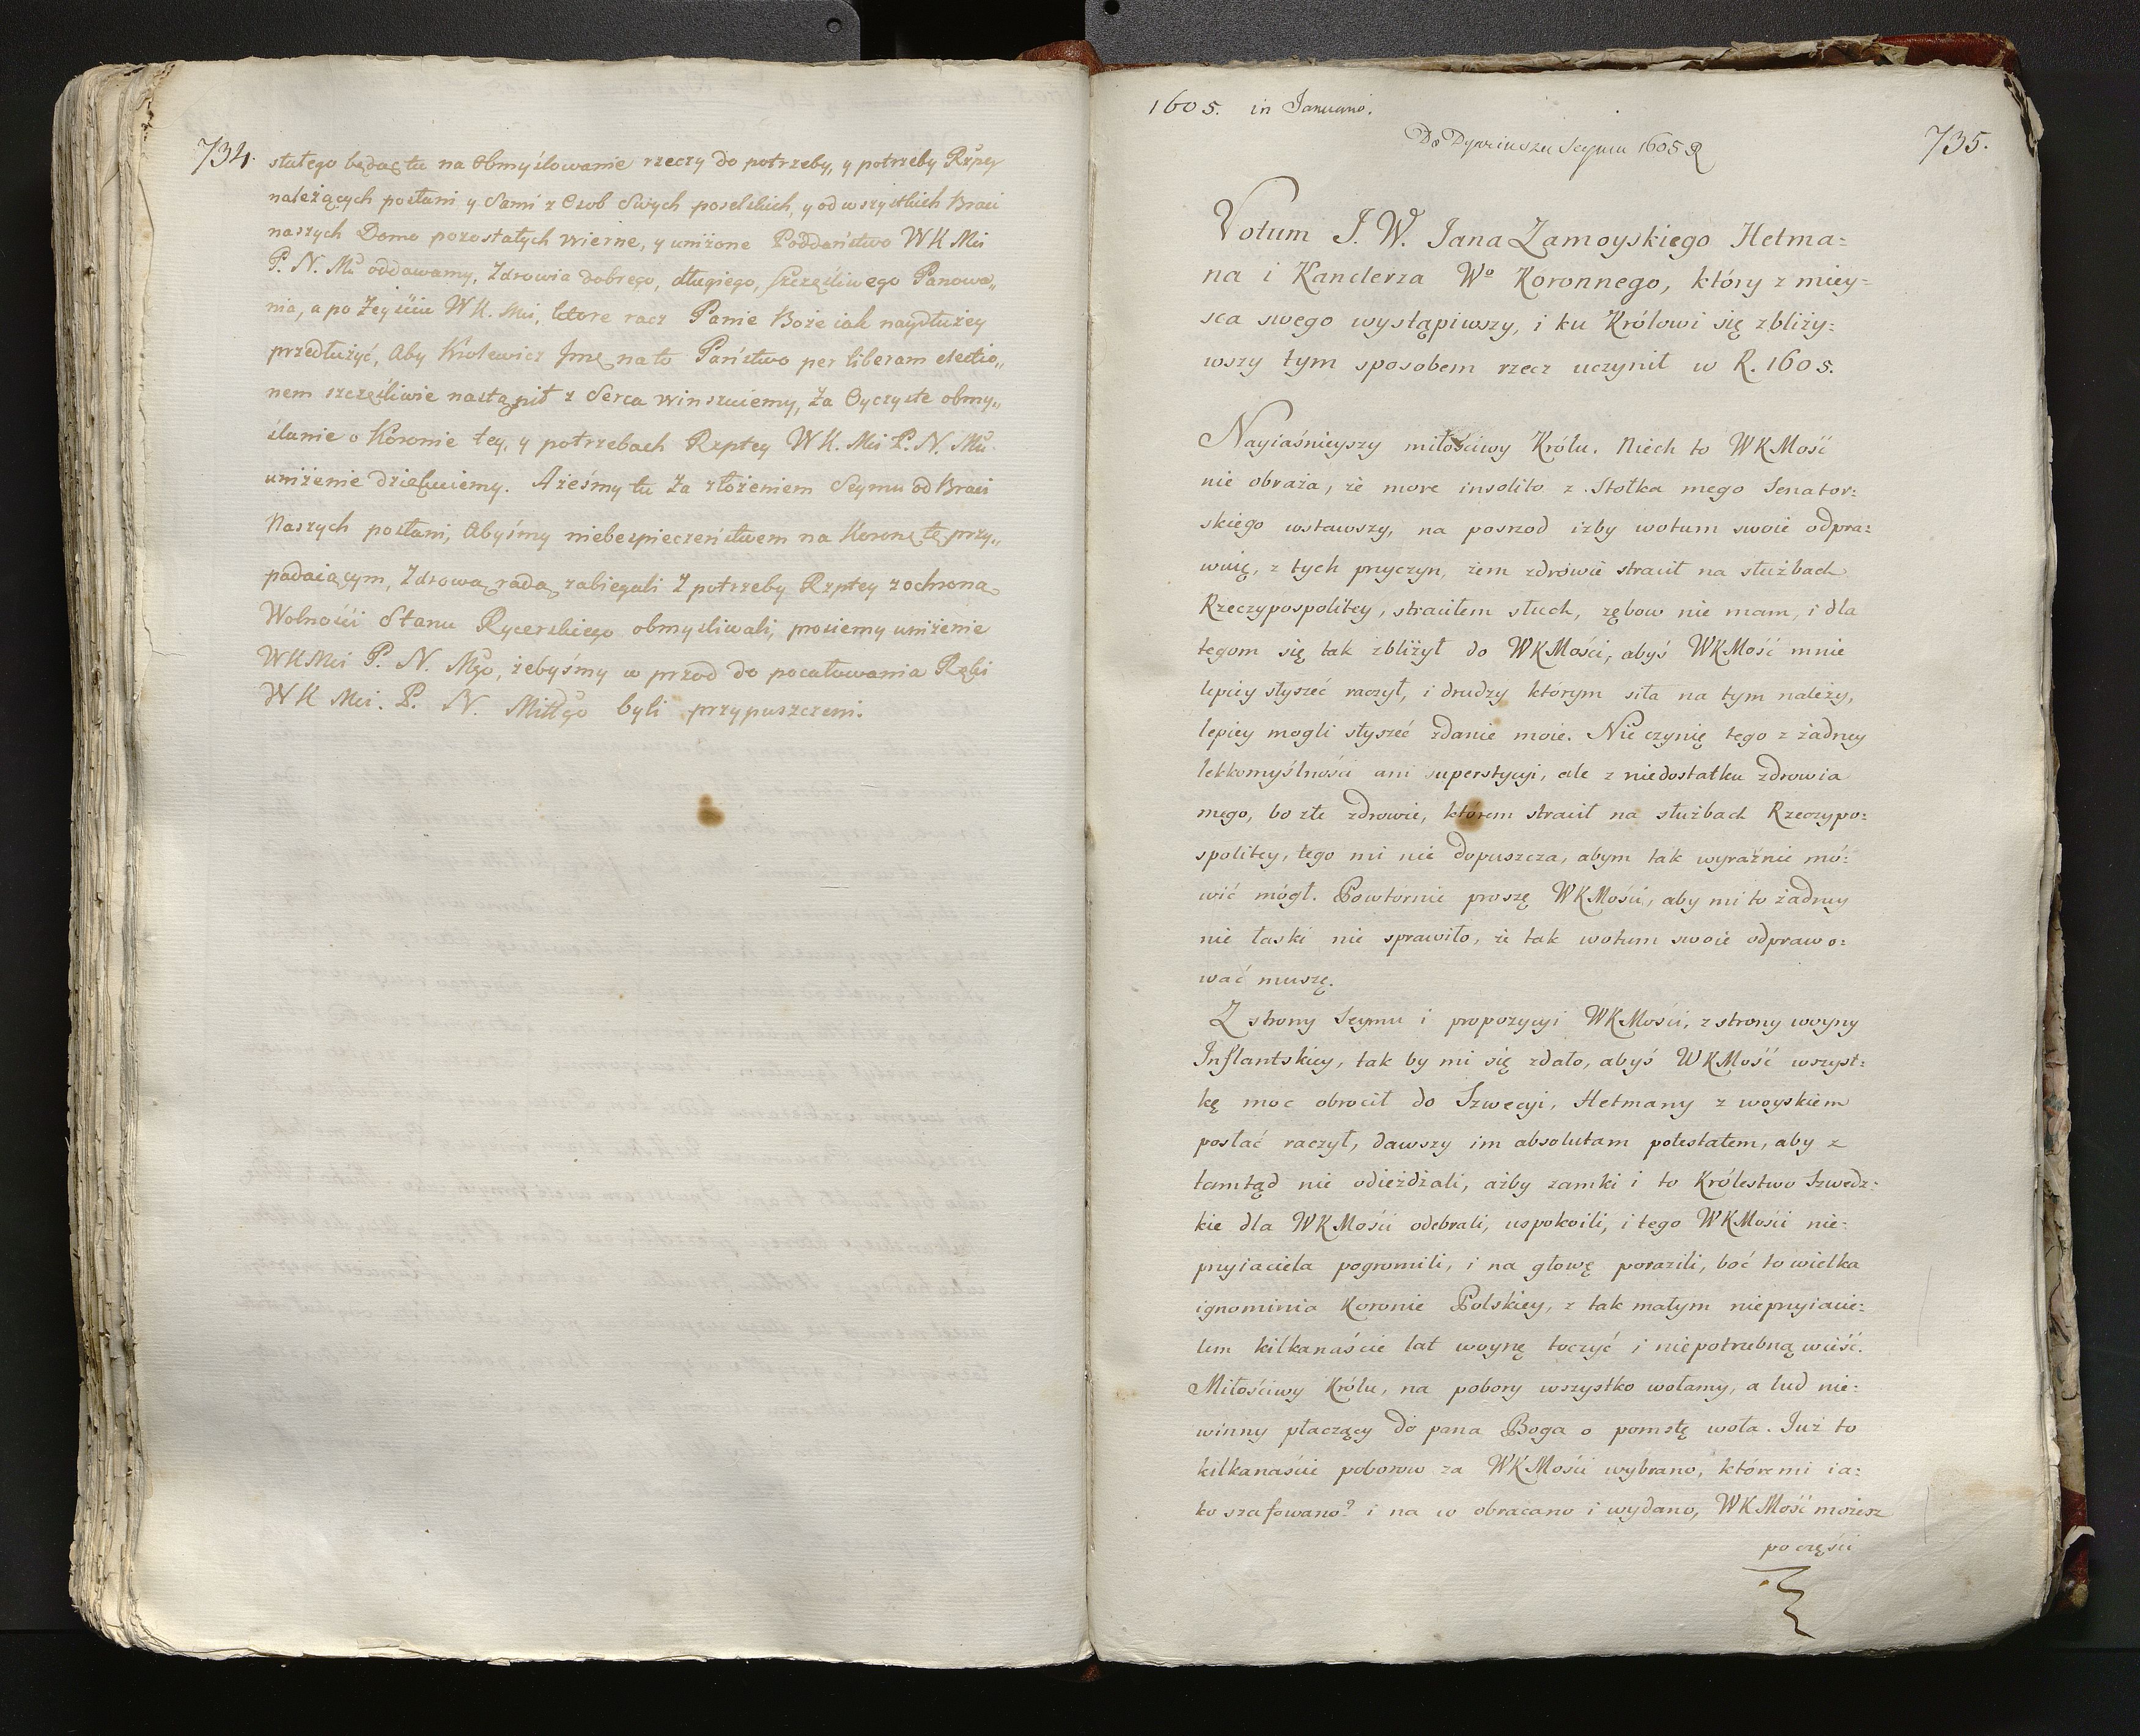 734.
stutego będąc tu na Obmyślowanie rzeczy do potrzeby, y potrzeby Rzpey
należących posłani y Sami z Osob Swych poselskich, y od wszystkich Braci
naszych Domo pozostałych wierne, y uniżone Poddaństwo WK Mci
P. N. Mu oddawamy, Zdrowia dobrego, długiego, Szczęśliwego Panowa„
nia, a po Zeyściu WK. Mci, ktore racz Panie Boże iak naydłużey
przedłużyć, Aby Krolewicz Jmę na to Państwo per liberam electio„
nem szczęśliwie nastąpił z Serca winszuiemy, Za Oyczyste obmy„
ślanie o Koronie tey, y potrzebach Rzptey WK. Mci P. N. Mu
uniżenie dziękuiemy. A żeśmy tu Za złożeniem Seymu od Braci
Naszych posłani, Abyśmy niebezpieczeństwem na Koronę tę przy„
padaiącym, Zdrową radą zabiegali Z potrzeby Rzptey z ochroną
Wolności Stanu Rycerskiego obmysliwali, prosiemy uniżenie
WKMci P. N. Mgo, żebyśmy w przod do pocałowania Ręki
WK Mci. P. N. Miłłgo byli przypuszczeni.
1605. in Januario.
Do Dyariuszu Seymu 1605 R
735.
Votum J. W. Jana Zamoyskiego Hetma=
na i Kanclerza Wo Koronnego, który z miey=
sca swego wystąpiwszy, i ku Królowi się zbliży=
wszy tym sposobem rzecz uczynił w R. 1605.
Nayiaśnieyszy miłościwy Królu. Niech to WKMość
nie obraża, że more insolito z Stołka mego Senator=
skiego wstawszy, na posrzod izby wotum swoie odpra=
wuię, z tych przyczyn, żem zdrowie stracił na służbach
Rzeczypospolitey, straciłem słuch, zębow nie mam, i dla
tegom się tak zbliżył do WKMości, abyś WKMość mnie
lepiey słyszeć raczył, i drudzy którym siła na tym należy,
lepiey mogli słyszeć zdanie moie. Nie czynię tego z żadney
lekkomyślności ani superstycyi, ale z niedostatku zdrowia
mego, bo złe zdrowie, którem stracił na służbach Rzeczypo=
spolitey, tego mi nie dopuszcza, abym tak wyraźnie mó=
wić mógł. Powtornie proszę WKMości, aby mi to żadney
nie łaski nie sprawiło, że tak wotum swoie odprawo=
wać muszę.
Z strony Seymu i propozycyi WKMości, z strony woyny
Inflantskiey, tak by mi się zdało, abyś WKMość wszyst=
kę moc obrocił do Szwecyi, Hetmany z woyskiem
posłać raczył, dawszy im absolutam potestatem, aby z
tamtąd nie odieżdżali, ażby zamki i to Królestwo Szwedz=
kie dla WKMości odebrali, uspokoili, i tego WKMości nie=
przyiaciela pogromili, i na głowę porazili, boć to wielka
ignominia Koronie Polskiey, z tak małym nieprzyiacie=
lem kilkanaście lat woynę toczyć i niepotrzebną wieść.
Miłościwy Królu, na pobory wszystko wołamy, a lud nie=
winny płaczący do pana Boga o pomstę woła. Już to
kilkanaście poborow za WKMości wybrano, któremi ia=
ko szafowano? i na co obracano i wydano, WKMość możesz
po części